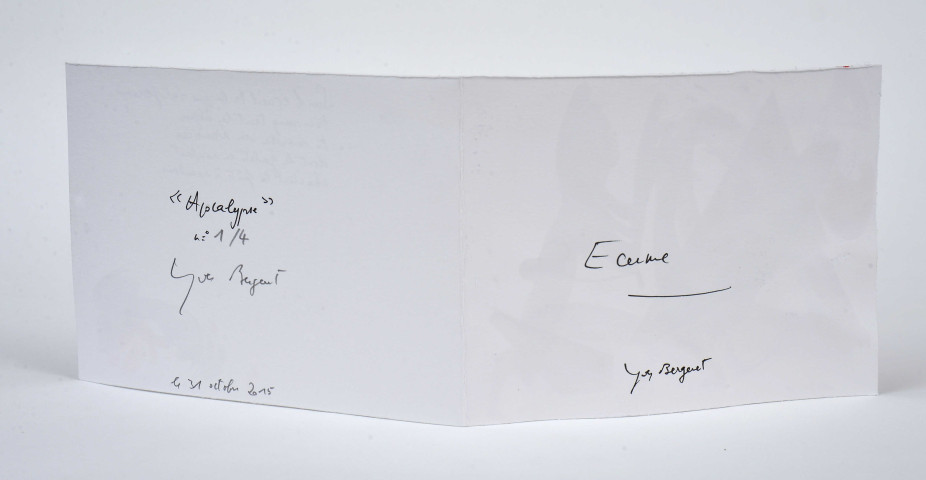 « Apocalypse »
n° 1/4
Yves Bergeret
le 31 octobre 2015
Ecume
Yves Bergeret